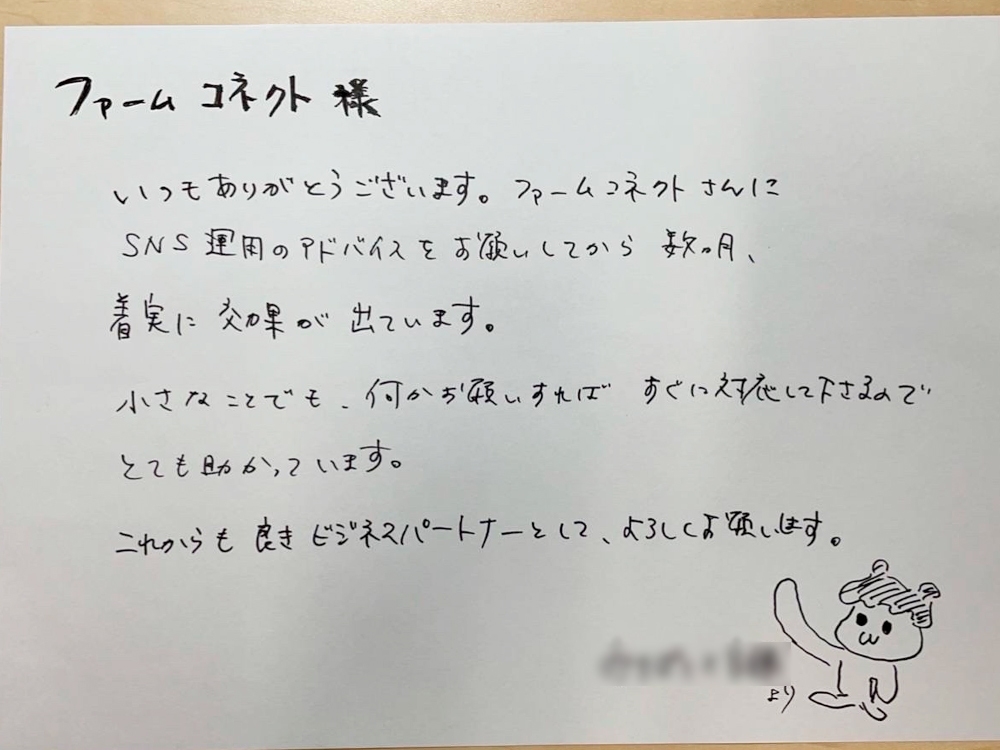 ファームコネクト様
いつもありがとうございます。ファームコネクトさんに
SNS運用のアドバイスをお願いしてから数ヶ月、
着実に効果が出ています。
小さなことでも、何かお願いすればすぐに対応して下さるので
とても助かっています。
これからも良きビジネスパートナーとして、よろしくお願いします。
より